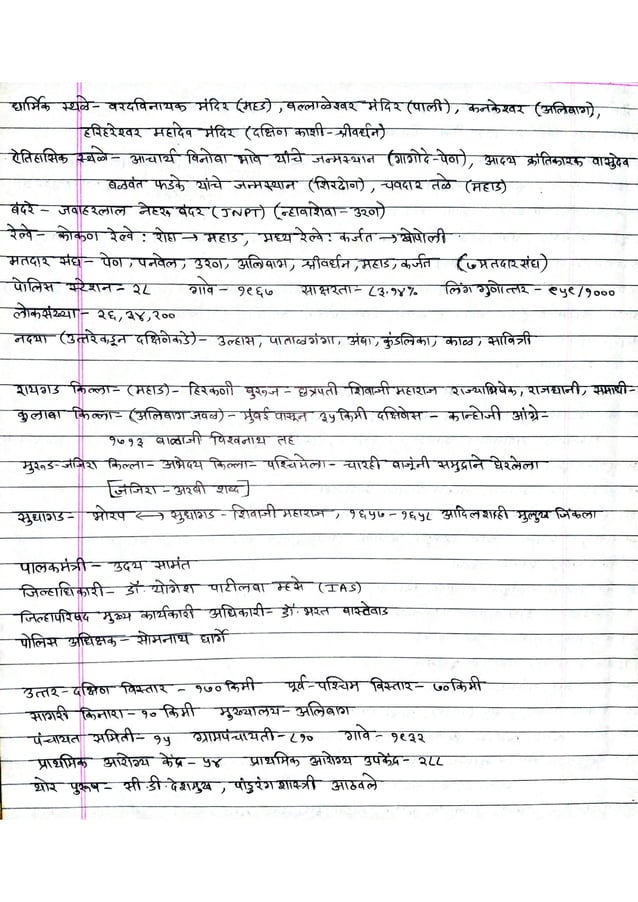 धार्मिक स्थळे- वरदविनायक मंदिर (महड), बल्लाळेश्वर मंदिर (पाली), कनकेश्वर (अलिबाग),
हरिहरेश्वर महादेव मंदिर (दक्षिण काशी-श्रीवर्धन)
ऐतिहासिक स्थळे- आचार्य विनोबा भावे यांचे जन्मस्थान (गागोदे-पेण), आदय क्रांतिकारक वासुदेव
बळवंत फडके यांचे जन्मस्थान (शिरढोण), चवदार तळे (महाड)
बंदरे- जवाहरलाल नेहरू बंदर (JNPT) (न्हावाशेवा-उरण)
रेल्वे- कोकण रेल्वे: रोहा → महाड, मध्य रेल्वे: कर्जत → खोपोली
मतदार संघ- पेण, पनवेल, उरण, अलिबाग, श्रीवर्धन, महाड, कर्जत (७ मतदारसंघ)
पोलिस स्टेशन- २८ गावे- १९६७ साक्षरता- ८३.१४% लिंग गुणोत्तर- ९५९/१०००
लोकसंख्या- २६,३४,२००
नदया (उत्तरेकडून दक्षिणेकडे)- उल्हास, पाताळगंगा, अंबा, कुंडलिका, काळ, सावित्री
रायगड किल्ला- (महाड)- हिरकणी बुरूज- छत्रपती शिवाजी महाराज राज्याभिषेक, राजधानी, समाधी-
कुलाबा किल्ला- (अलिबाग जवळ)- मुंबई पासून ३५ किमी दक्षिणेस- कान्होजी आंग्रे-
१७१३ बाळाजी विश्वनाथ तह
मुरूड-जंजिरा किल्ला- अभेदय किल्ला- पश्चिमेला- चारही बाजूंनी समुद्राने घेरलेला
[जंजिरा- अरबी शब्द]
सुधागड- भोरप ↔ सुधागड- शिवाजी महाराज, १६५७-१६५८ आदिलशाही मुलुख जिंकला
पालकमंत्री- उदय सामंत
जिल्हाधिकारी- डॉ. योगेश पाटीलबा म्हसे (IAS)
जिल्हापरिषद मुख्य कार्यकारी अधिकारी- डॉ. भरत बास्तेवाड
पोलिस अधिक्षक- सोमनाथ घार्गे
उत्तर-दक्षिण विस्तार- १७० किमी पूर्व-पश्चिम विस्तार- ७० किमी
सागरी किनारा- १० किमी मुख्यालय- अलिबाग
पंचायत समिती- १५ ग्रामपंचायती- ८१० गावे- १९३२
प्राथमिक आरोग्य केंद्र- ५४ प्राथमिक आरोग्य उपकेंद्र- २८८
थोर पुरूष- सी.डी.देशमुख, पांडुरंगशास्त्री आठवले